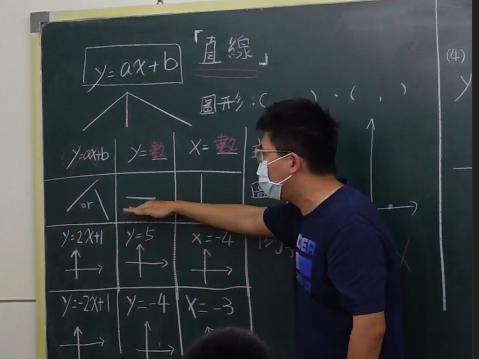 「直線」
y=ax+b
圖形:( )、( , )
y=ax+b y=數 x=數
or
y=2x+1 y=5 x=-4
y=-2x+1 y=-4 x=-3
(4)
y
x